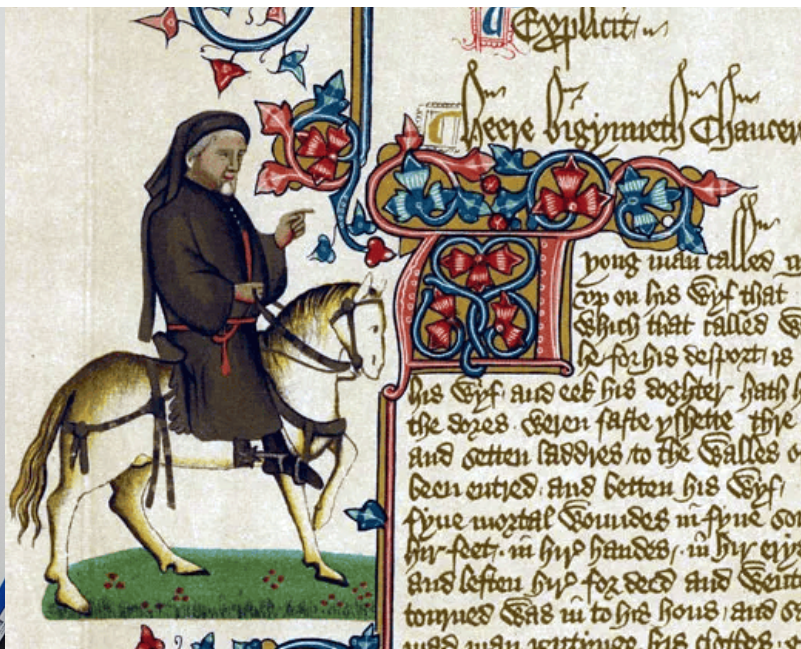 Explicit
Heere bigynneth Chaucer
A yong man called
vp on his wyf that
which that called
he for his desport is
his wyf and eek his doghter hath
the dores weren faste yshette thre
and setten laddres to the walles
been entred and betten his wyf
fyue mortal woundes in fyue
hir feet in hir handes in hir
and leften hir for deed and
tourned was in to his hous and
mad man rentinge his clothes